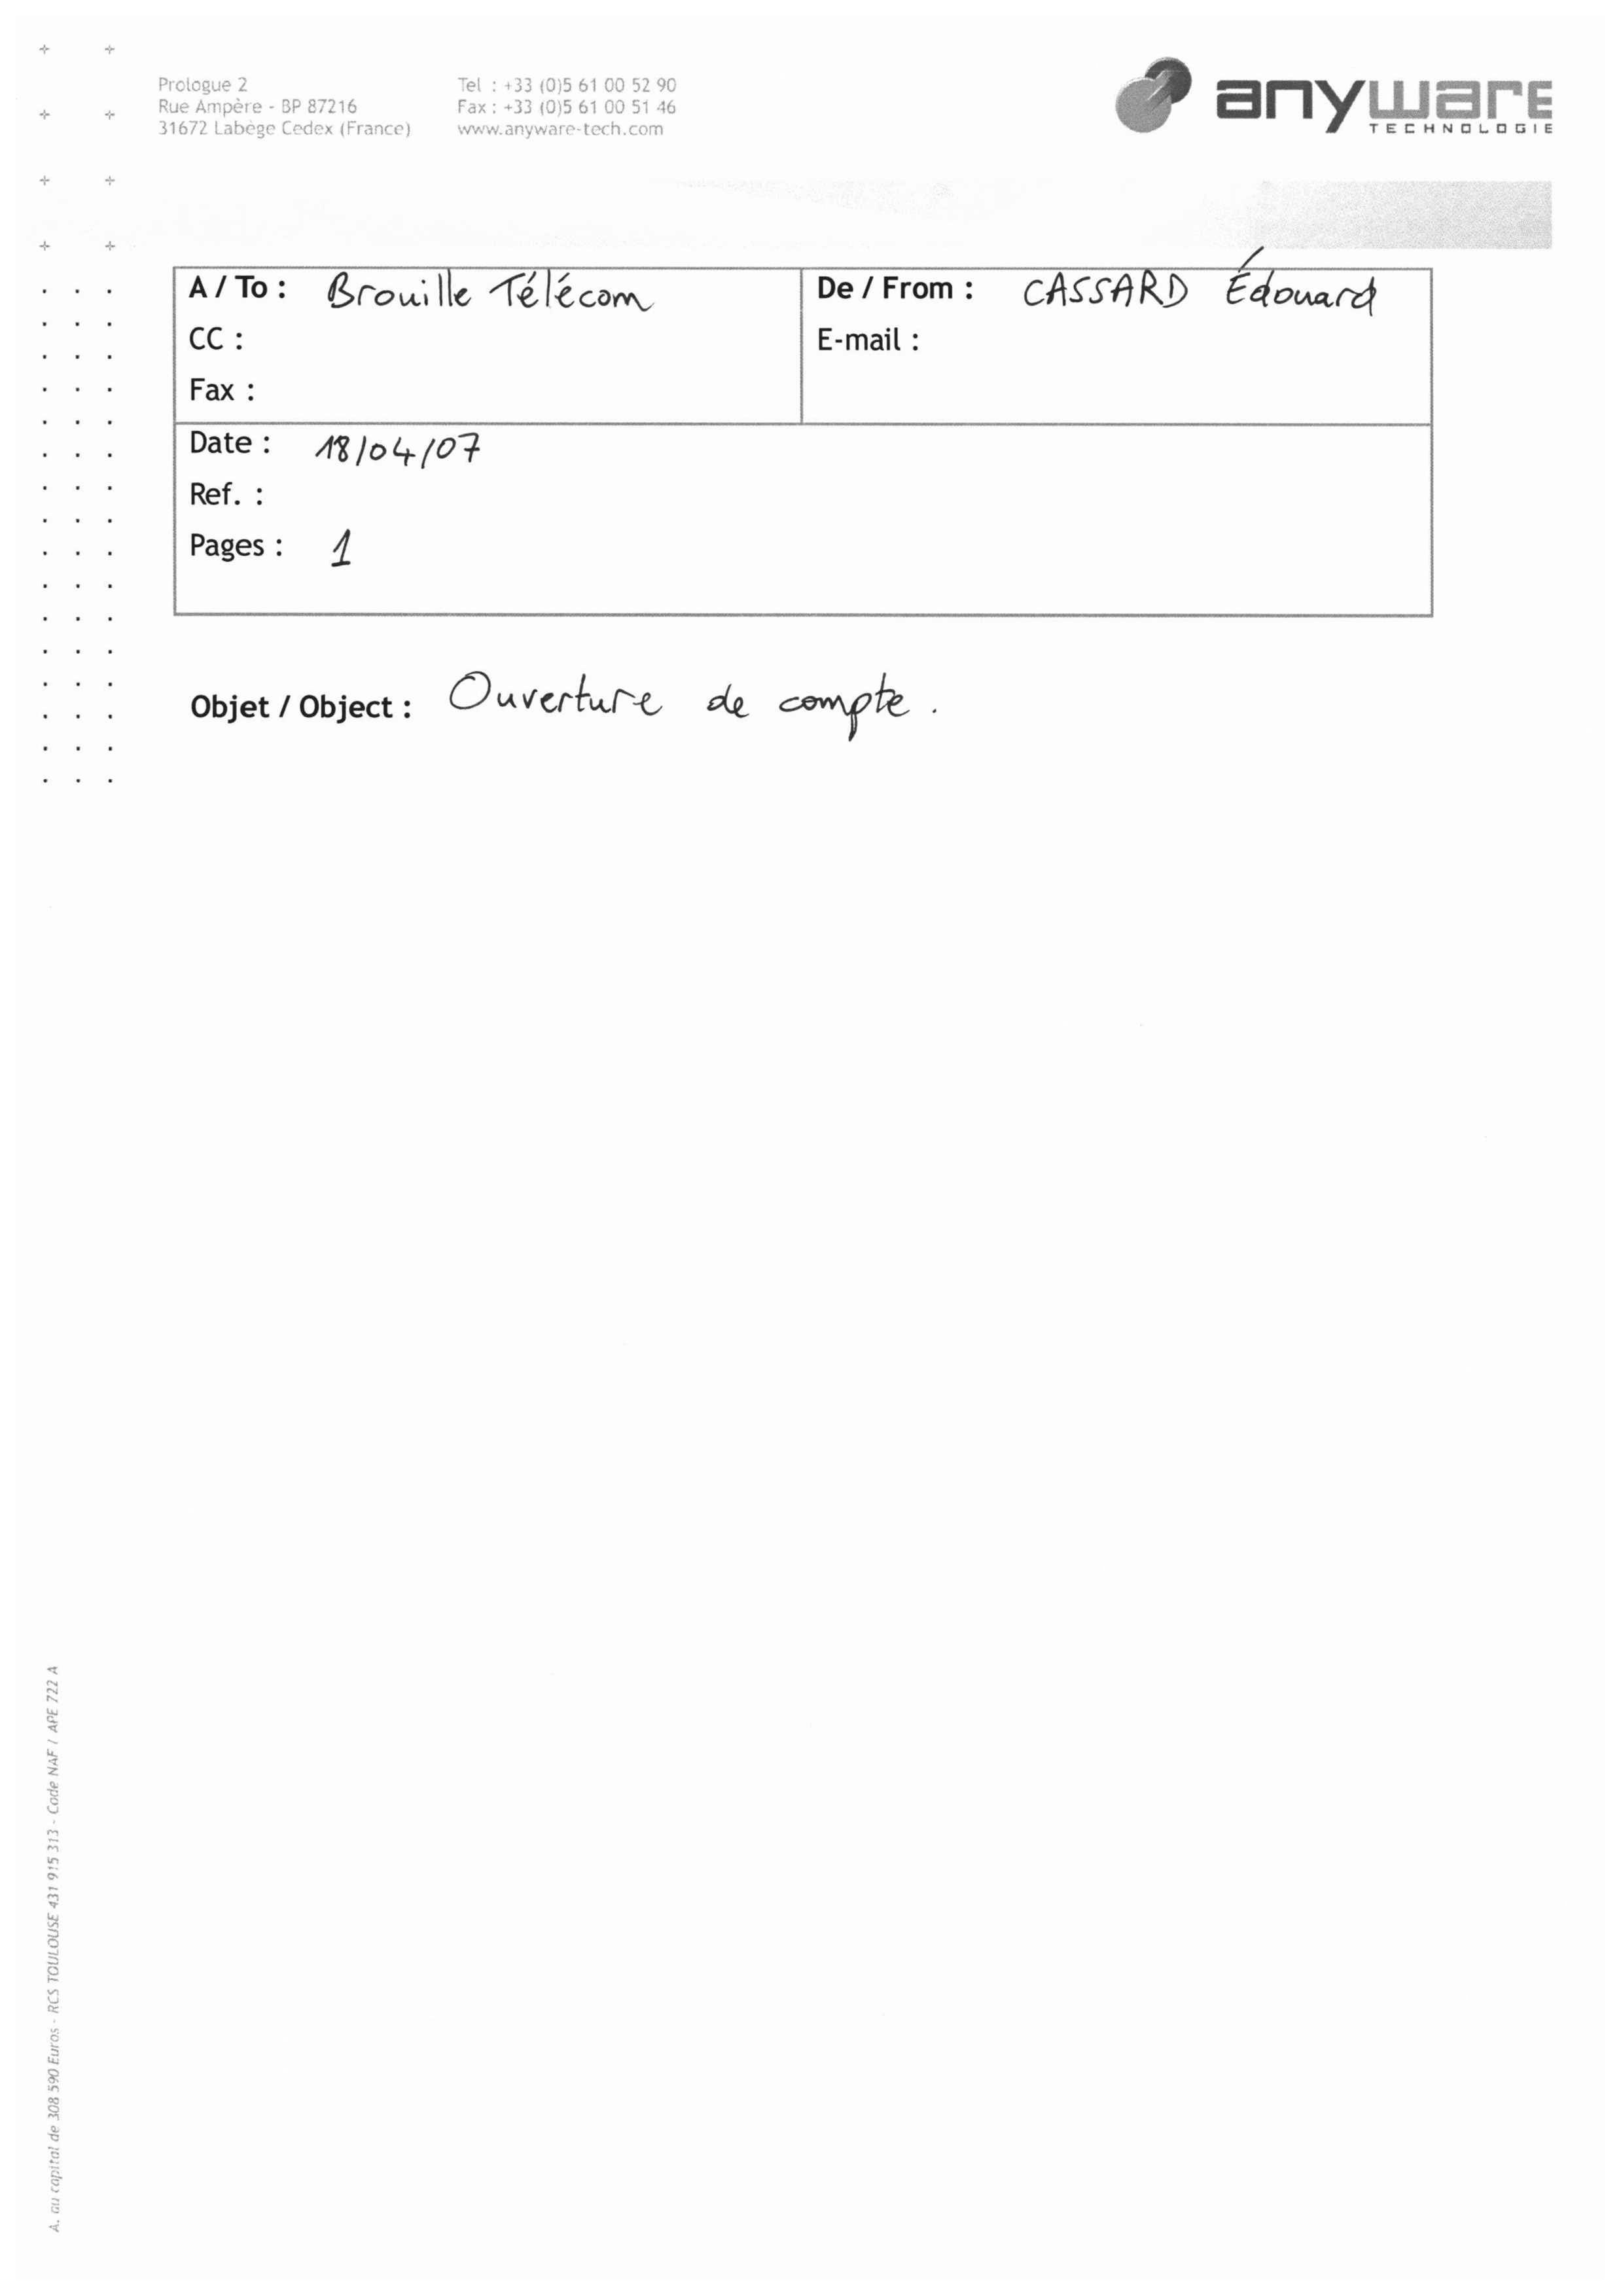 Prologue 2
Rue Ampère - BP 87216
31672 Labège Cedex (France)
Tel : +33 (0)5 61 00 52 90
Fax : +33 (0)5 61 00 51 46
www.anyware-tech.com
anyware
TECHNOLOGIE
A / To : Brouille Télécom
CC :
Fax :
De / From : CASSARD Édouard
E-mail :
Date : 18/04/07
Ref. :
Pages : 1
Objet / Object : Ouverture de compte.
A. au capital de 308 590 Euros - RCS TOULOUSE 431 915 313 - Code NAF / APE 722 A